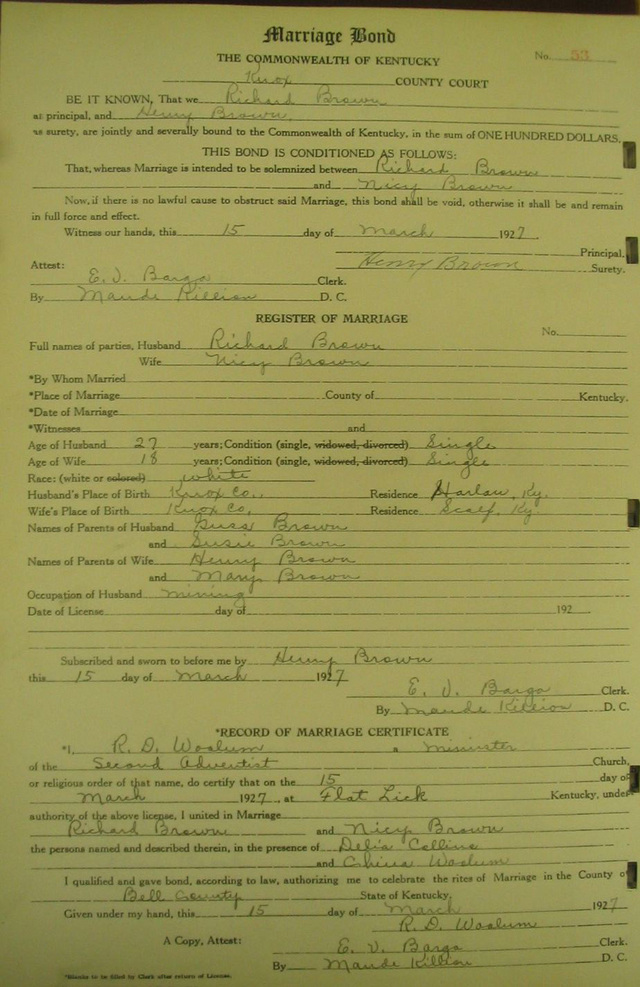 Marriage Bond
THE COMMONWEALTH OF KENTUCKY
No. 53
Knox COUNTY COURT
BE IT KNOWN, That we Richard Brown
as principal, and Henry Brown
as surety, are jointly and severally bound to the Commonwealth of Kentucky, in the sum of ONE HUNDRED DOLLARS.
THIS BOND IS CONDITIONED AS FOLLOWS:
That, whereas Marriage is intended to be solemnized between Richard Brown
and Nicy Brown
Now, if there is no lawful cause to obstruct said Marriage, this bond shall be void, otherwise it shall be and remain
in full force and effect.
Witness our hands, this 15 day of March 1927
Principal.
Attest: Henry Brown Surety.
E. V. Bargo Clerk.
By Maude Killion D. C.
REGISTER OF MARRIAGE
No.
Full names of parties, Husband Richard Brown
Wife Nicy Brown
*By Whom Married
*Place of Marriage County of Kentucky.
*Date of Marriage
*Witnesses and
Age of Husband 27 years; Condition (single, widowed, divorced) Single
Age of Wife 18 years; Condition (single, widowed, divorced) Single
Race: (white or colored) white
Husband's Place of Birth Knox Co., Residence Harlan, Ky.
Wife's Place of Birth Knox Co, Residence Scalf, Ky.
Names of Parents of Husband Guss Brown
and Susie Brown
Names of Parents of Wife Henry Brown
and Mary Brown
Occupation of Husband mining
Date of License day of 192
Subscribed and sworn to before me by Henry Brown
this 15 day of March 1927
E. V. Bargo Clerk.
By Maude Killion D. C.
*RECORD OF MARRIAGE CERTIFICATE
*I, R. D. Woolum a minister
of the Second Adventist Church,
or religious order of that name, do certify that on the 15 day of
March 1927, at Flat Lick Kentucky, under
authority of the above license, I united in Marriage
Richard Brown and Nicy Brown
the persons named and described therein, in the presence of Delia Collins
and Woolum
I qualified and gave bond, according to law, authorizing me to celebrate the rites of Marriage in the County of
Bell County State of Kentucky.
Given under my hand, this 15 day of March 1927
R. D. Woolum
A Copy, Attest: E. V. Bargo Clerk.
By Maude Killion D. C.
*Blanks to be filled by Clerk after return of License.